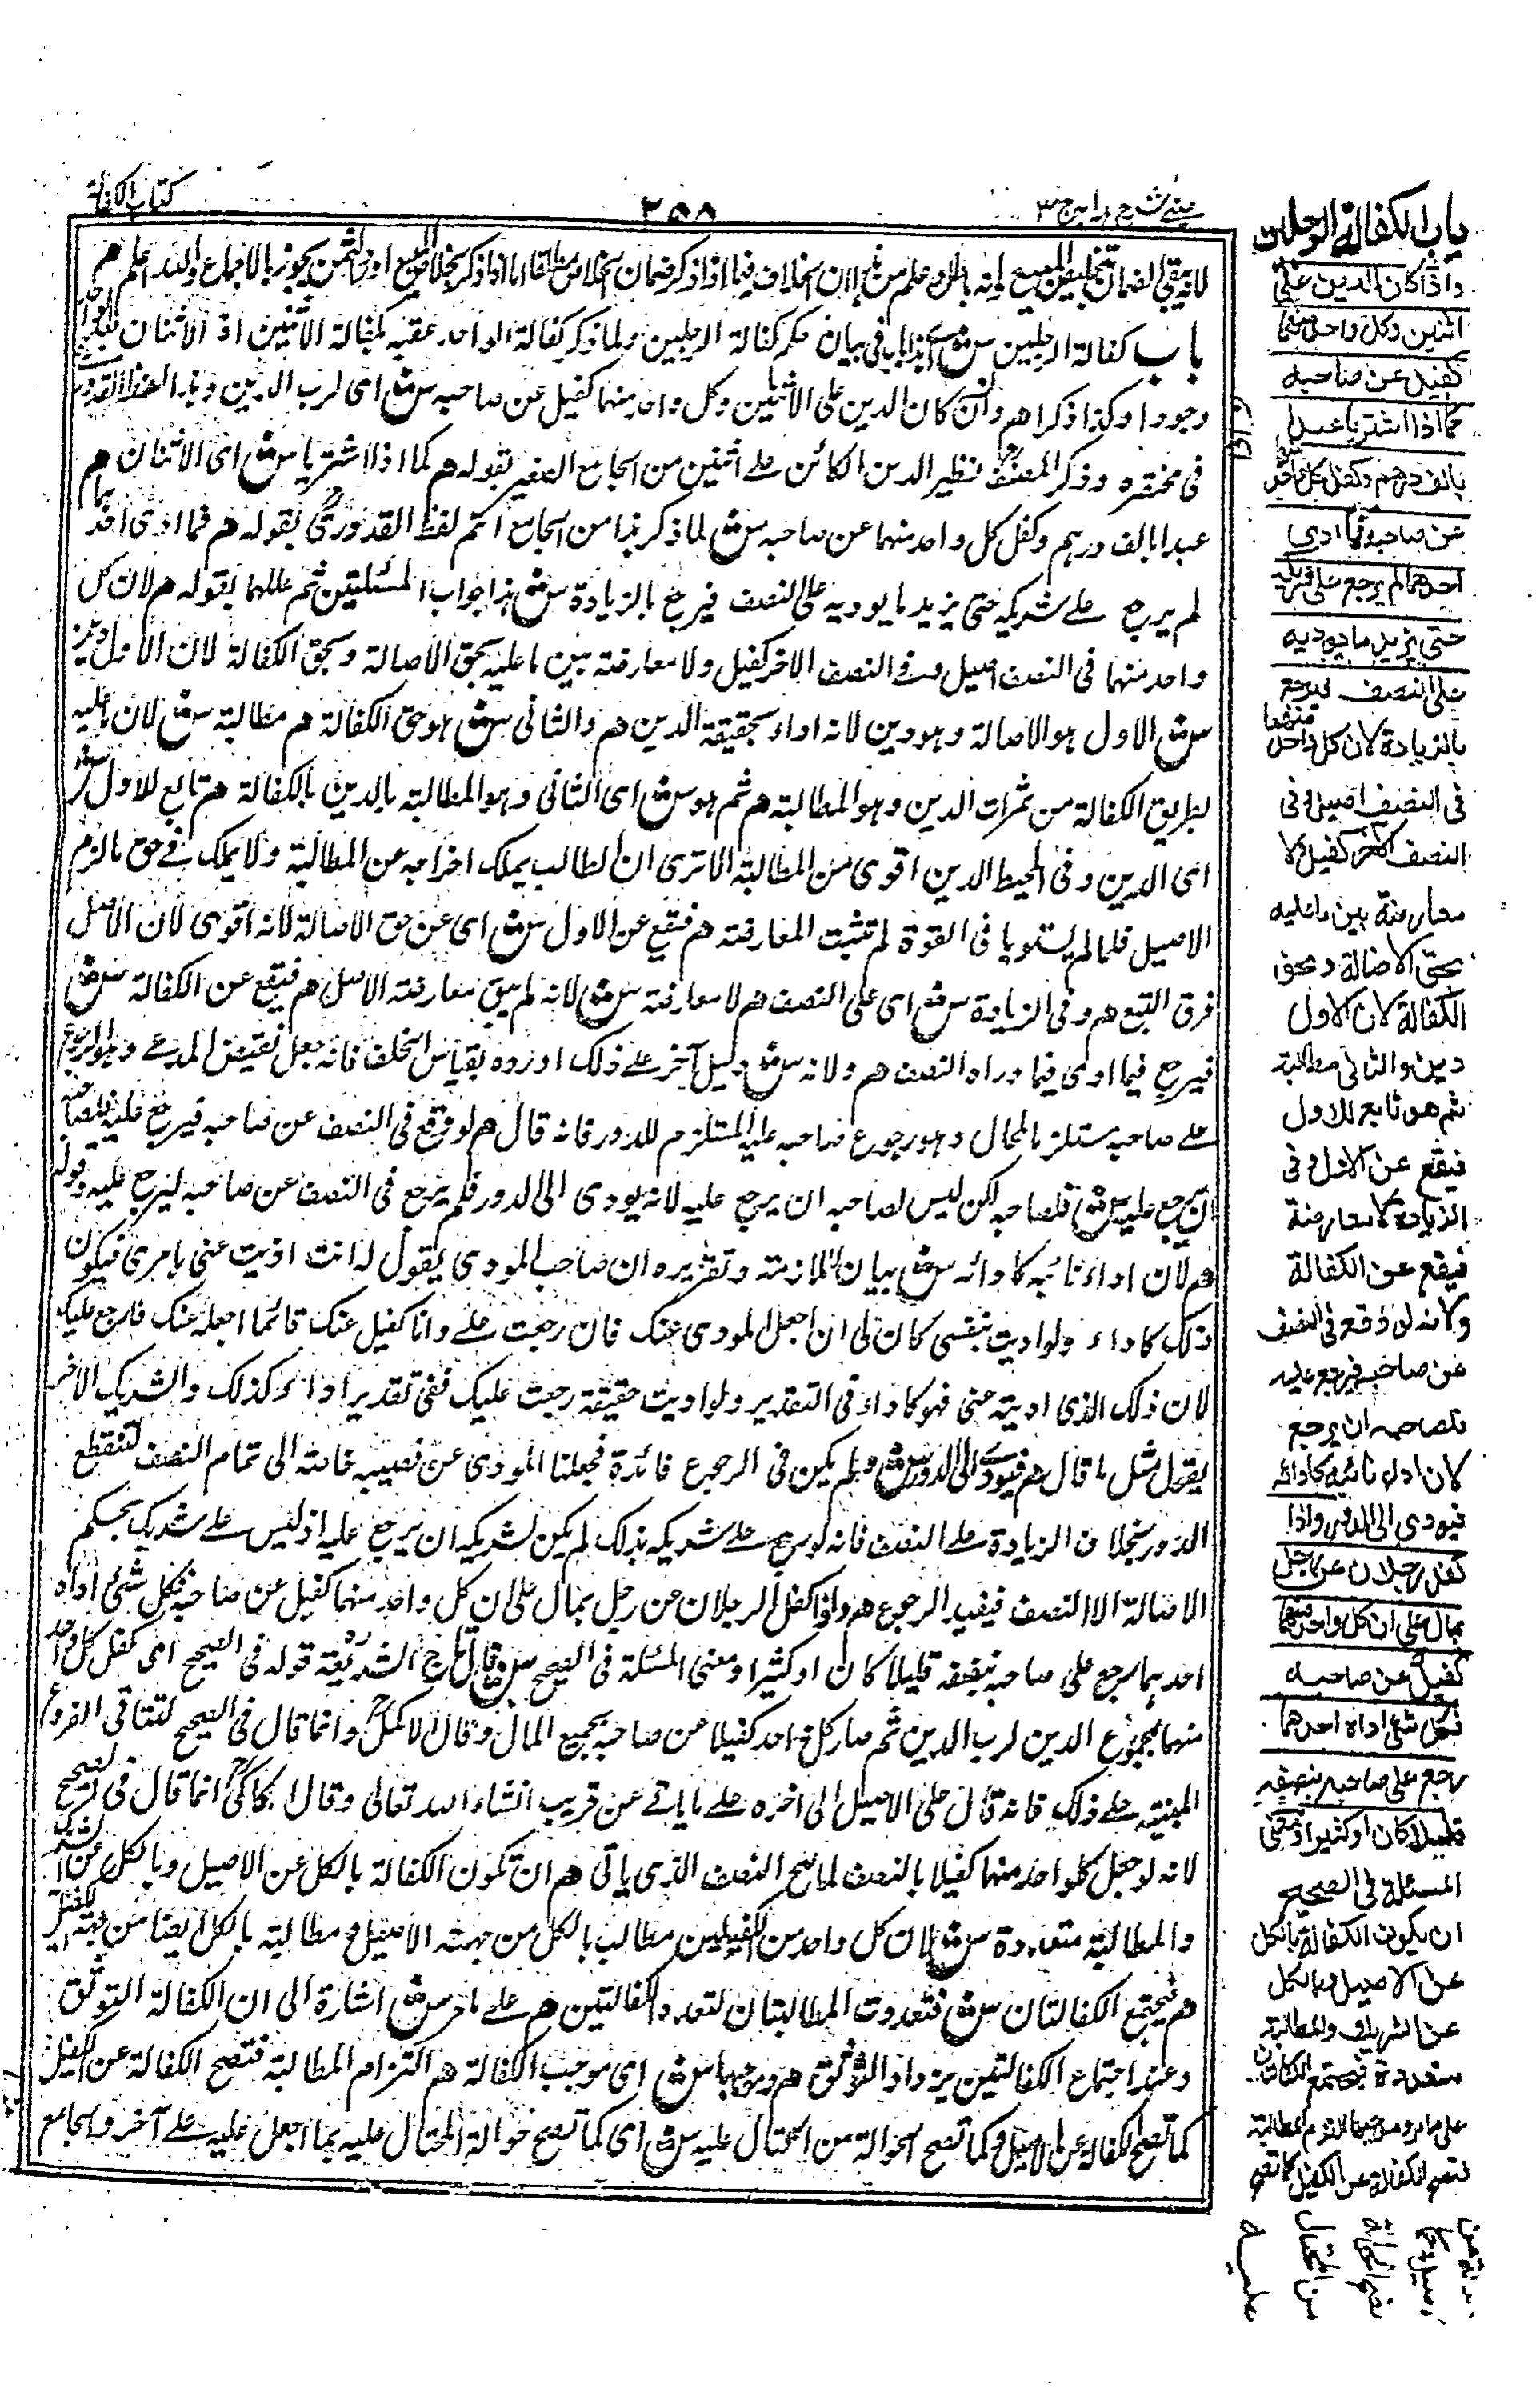 عينى شرح هدايه ج ٣
٢٥٨
كتاب الكفالة
باب كفالة الرجلين سش اى هذا باب فى بيان حكم كفالة الرجلين ولما ذكر كفالة الواحد عقبه بكفالة الاثنين اذ الاثنان
وجودا وكذا ذكرا هم واذا كان الدين على الاثنين وكل واحد منهما كفيل عن صاحبه سش اى لرب الدين وهذا لفظ القدورى
فى مختصره وذكر المصنف نظير الدين الكائن على اثنين من الجامع الصغير بقوله هم كما اذا اشتريا سش اى الاثنان هم
عبدا بالف درهم وكفل كل واحد منهما عن صاحبه سش لما ذكر هذا من الجامع اتم لفظ القدورى بقوله هم فما ادى احدهما
لم يرجع على شريكه حتى يزيد ما يوديه على النصف فيرجع بالزيادة سش هذا جواب المسئلتين ثم عللهما بقوله هم لان كل
واحد منهما فى النصف اصيل وفى النصف الاخر كفيل ولا معارضة بين ما عليه بحق الاصالة وبحق الكفالة لان الاول دين
سش الاول هو الاصالة وهو دين لانه اداء بحقيقة الدين هم والثانى سش هو حق الكفالة هم مطالبة سش لان ما عليه
بطريق الكفالة من ثمرات الدين وهو المطالبة هم ثم هو سش اى الثانى وهو المطالبة بالدين بالكفالة هم تابع للاول سش
اى الدين وفى المحيط الدين اقوى من المطالبة الا ترى ان الطالب يملك اخراجه عن المطالبة ولا يملك فى حق ما لزم
الاصيل فلما لم يستويا فى القوة لم تثبت المعارضة هم فيقع عن الاول سش اى عن حق الاصالة لانه اقوى لان الاصل
فرق التبع هم وفى الزيادة سش اى على النصف هم لا معارضة سش لانه لم يبق معارضة الاصل هم فيقع عن الكفالة سش
فيرجع فيما ادى فيما وراء النصف هم ولانه سش دليل آخر على ذلك اورده بقياس الخلف فانه جعل نقيض المدعى وهو الرجوع
على صاحبه مستلزما لمحال وهو رجوع صاحبه عليه المستلزم للدور فانه قال هم لو وقع فى النصف عن صاحبه فيرجع عليه فلصاحبه
ان يرجع عليه سش فلصاحبه لكن ليس لصاحبه ان يرجع عليه لانه يودى الى الدور فلم يرجع فى النصف عن صاحبه ليرجع عليه وقوله
هم لان اداء نائبه كادائه سش بيان الملازمة وتقريره ان صاحب المودى يقول له انت اديت عنى بامرى فيكون
ذلك كاداء ولو اديت بنفسى كان لى ان اجعل المودى عنك فان رجعت على وانا كفيل عنك فانما اجعله عنك فارجع عليك
لان ذلك الذى اديته عنى فهو كاداء فى التقدير ولو اديت حقيقة رجعت عليك ففى تقدير اداء كذلك والشريك الاخر
يقول مثل ما قال هم فيودى الى الدور سش ولم يكن فى الرجوع فائدة فجعلنا المودى عن نصيبه خاصة الى تمام النصف لتنقطع
الدور بخلاف الزيادة على النصف فانه لو رجع على شريكه بذلك لم يكن لشريكه ان يرجع عليه اذ ليس على شريك بحكم
الاصالة الا النصف فيفيد الرجوع هم واذا كفل الرجلان عن رجل بمال على ان كل واحد منهما كفيل عن صاحبه فكل شئ اداه
احدهما رجع على صاحبه بنصفه قليلا كان او كثيرا ومعنى المسئلة فى الصحيح سش قال تاج الشريعة قوله فى الصحيح اى كفل كل واحد
منهما بمجموع الدين لرب الدين ثم صار كل واحد كفيلا عن صاحبه بجميع المال وقال الاكمل وانما قال فى الصحيح لتتاتى الفروع
المبنية على ذلك فانه قال على الاصيل الى اخره على ما ياتى عن قريب انشاء الله تعالى وقال الكاكى انما قال فى الصحيح
لانه لو جعل كل واحد منهما كفيلا بالنصف لما صح النصف الذى ياتى هم ان تكون الكفالة بالكل عن الاصيل وبالكل عن الشريك
والمطالبة متعددة سش لان كل واحد من الكفيلين مطالب بالكل من جهة الاصيل ومطالبة بالكل ايضا من جهة الكفيل
هم فيجتمع الكفالتان سش فتعددت المطالبتان لتعدد الكفالتين هم على ما مر سش اشارة الى ان الكفالة التوثق
وعند اجتماع الكفالتين يزداد التوثق هم وموجبها سش اى موجب الكفالة هم التزام المطالبة فتصح الكفالة عن الكفيل
كما تصح الكفالة عن الاصيل وكما تصح الحوالة من المحتال عليه سش اى كما تصح حوالة المحتال عليه بما جعل عليه على آخر والجامع
باب الكفالة الرجلان
واذا كان الدين على
اثنين وكل واحد منهما
كفيل عن صاحبه
كما اذا اشتريا عبدا
بالف درهم وكفل كل واحد
عن صاحبه فما ادى
احدهما لم يرجع على شريكه
حتى يزيد ما يوديه
على النصف فيرجع
بالزيادة لان كل واحد منهما
فى النصف اصيل وفى
النصف الاخر كفيل ولا
معارضة بين ما عليه
بحق الاصالة وبحق
الكفالة لان الاول
دين والثانى مطالبة
ثم هو تابع للاول
فيقع عن الاول وفى
الزيادة لا معارضة
فيقع عن الكفالة
ولانه لو وقع فى النصف
عن صاحبه فيرجع عليه
فلصاحبه ان يرجع
لان اداء نائبه كادائه
فيودى الى الدور واذا
كفل رجلان عن رجل
بمال على ان كل واحد منهما
كفيل عن صاحبه
فكل شئ اداه احدهما
رجع على صاحبه بنصفه
قليلا كان او كثيرا ومعنى
المسئلة فى الصحيح
ان يكون الكفالة بالكل
عن الاصيل وبالكل
عن الشريك والمطالبة
متعددة فيجتمع الكفالتان
على ما مر وموجبها التزام المطالبة
فتصح الكفالة عن الكفيل كما تصح